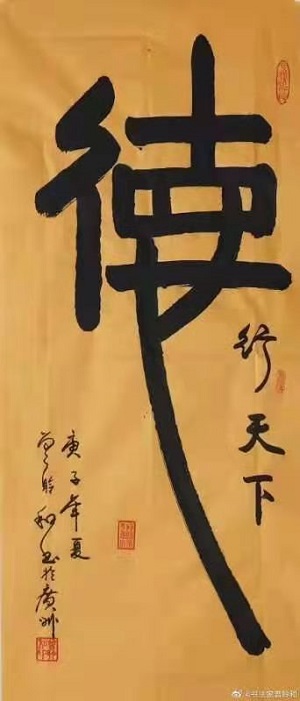 德
行天下
庚子年夏
和書於廣州